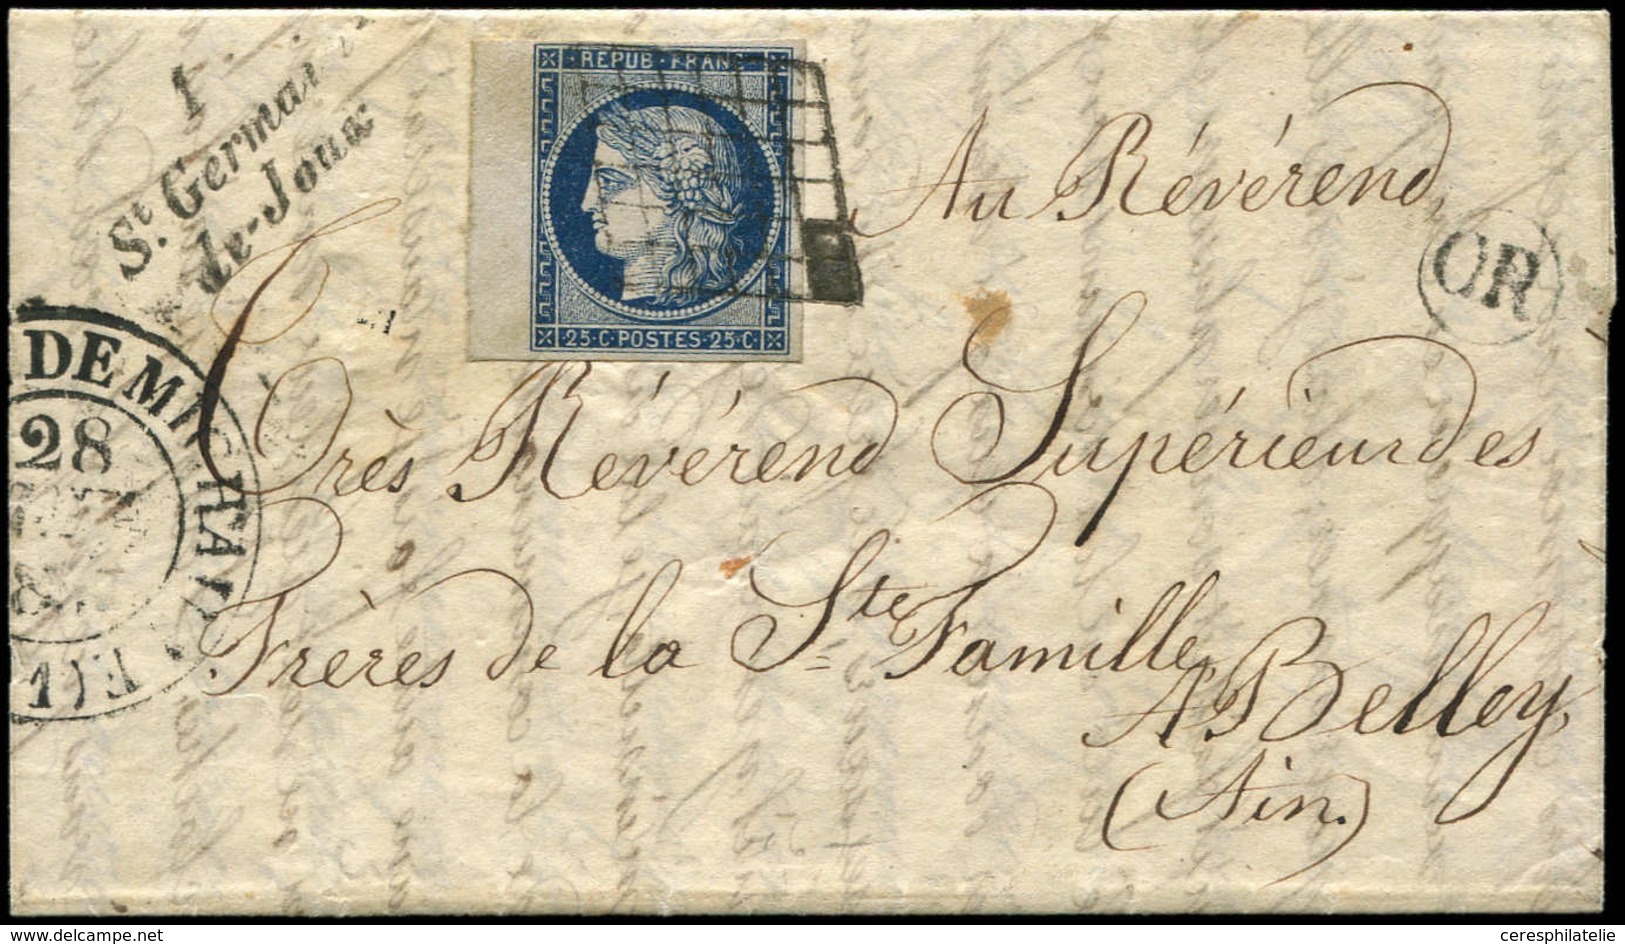 1
St. Germai
de-Joux
REPUB · FRANC
25·C·POSTES·25·C·
Au Révérend
OR
DE MICHAIL
28
Très Révérend Supérieur des
Frères de la Ste Famille
A Belley,
(Ain.)
www.delcampe.net
ceresphilatelie